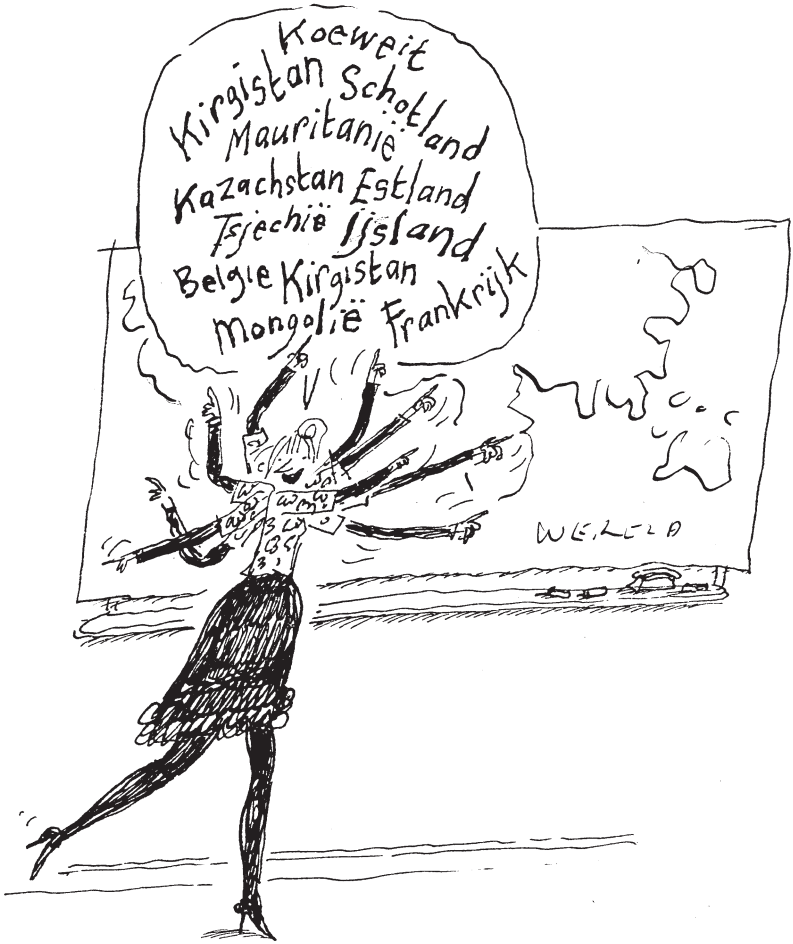 Koeweit
Kirgistan Schotland
Mauritanië
Kazachstan Estland
Tsjechië IJsland
Belgie Kirgistan
Mongolië Frankrijk
WERELD